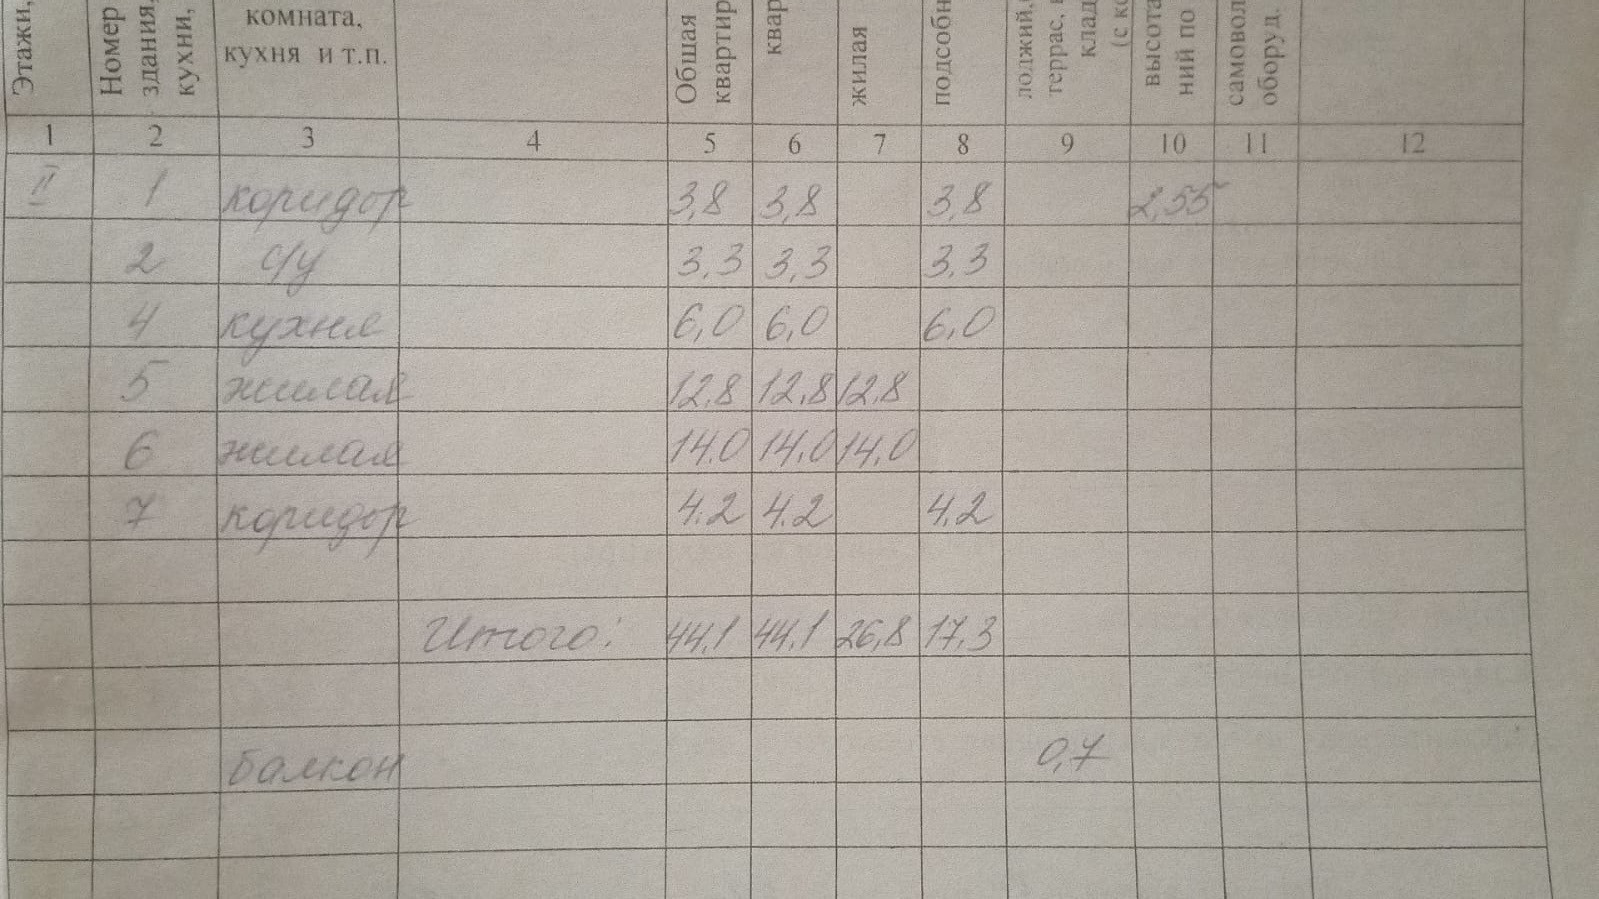 Этажи,
Номер
здания,
кухни,
комната,
кухня и т.п.
Общая
квартир
квар
жилая
подсобн
лоджий,
террас,
клад
(с ко
высота
ний по
самовол
оборуд.
1 2 3 4 5 6 7 8 9 10 11 12
II 1 коридор 3,8 3,8 3,8 2,55
2 с/у 3,3 3,3 3,3
4 кухня 6,0 6,0 6,0
5 жилая 12,8 12,8 12,8
6 жилая 14.0 14.0 14,0
7 коридор 4.2 4.2 4.2
Итого: 44,1 44,1 26,8 17,3
балкон 0,7